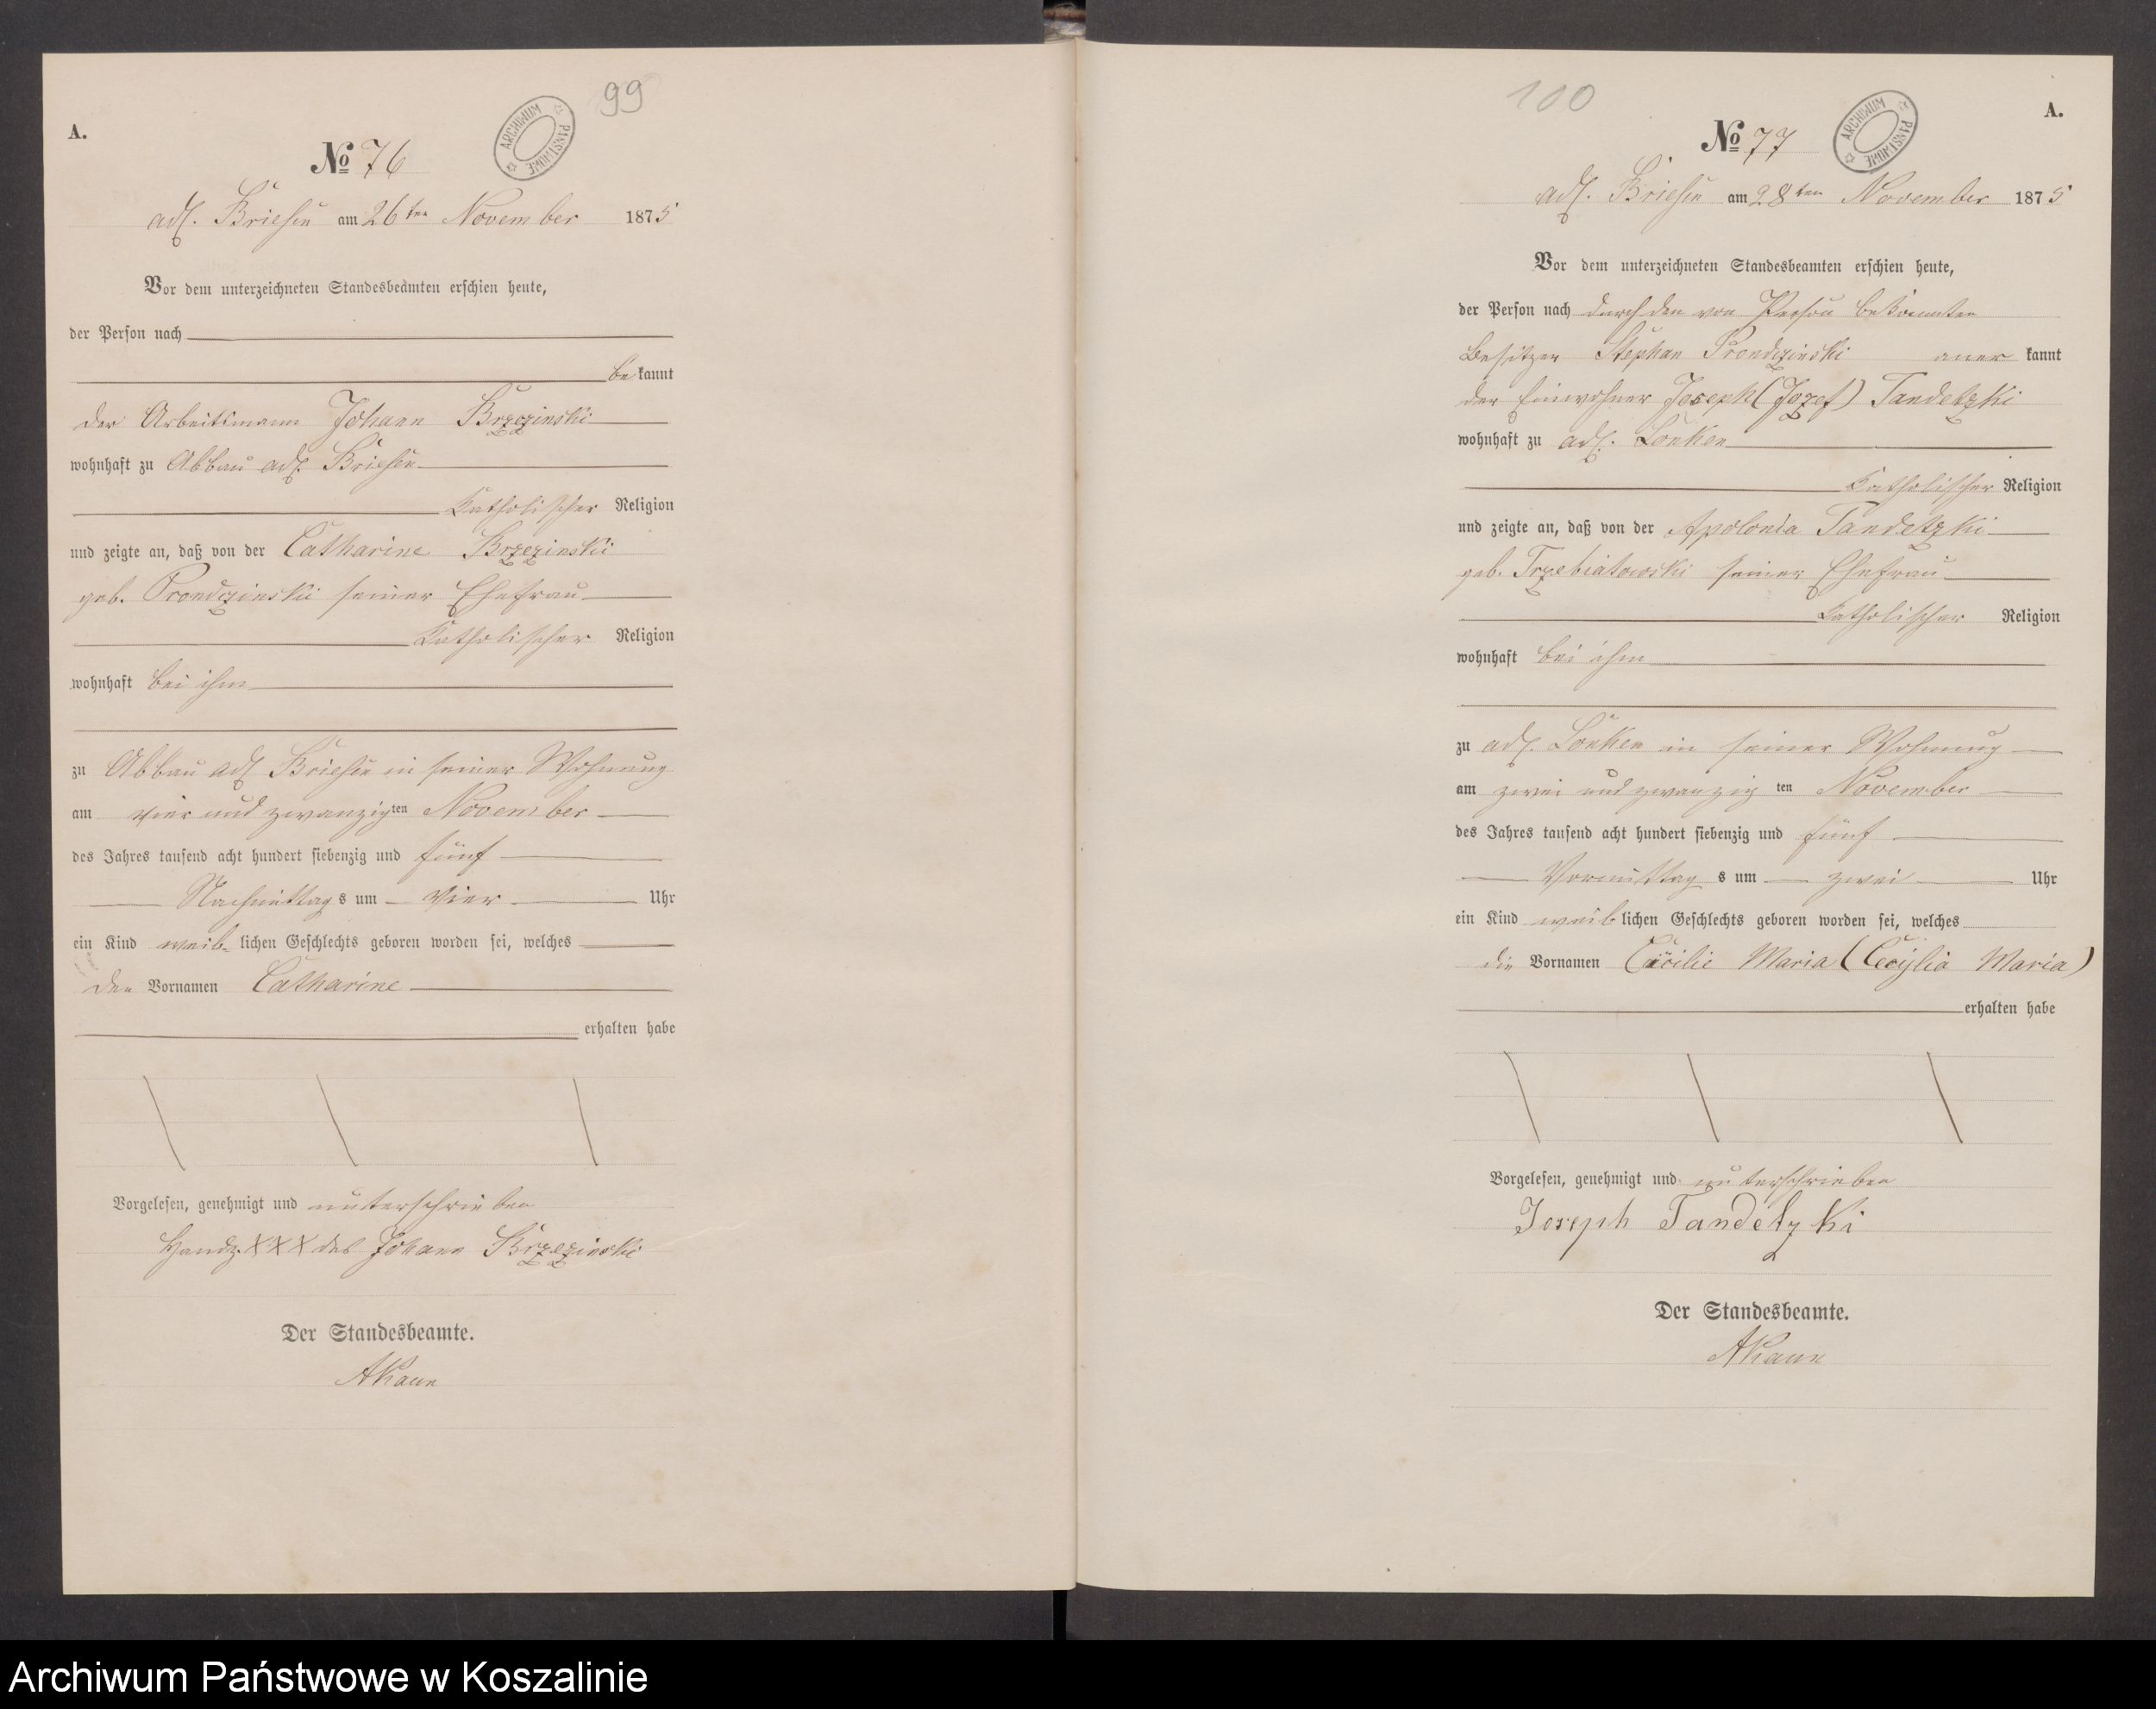 99
A.
ARCHIWUM PAŃSTWOWE
№ 76
adl. Briesen am 26ten November 1875
Vor dem unterzeichneten Standesbeamten erschien heute,
der Person nach
bekannt
der Arbeitsmann Johann Brzezinski
wohnhaft zu Abbau adl. Briesen
Katholischer Religion
und zeigte an, daß von der Catharine Brzezinski
geb. Prondzinski seiner Ehefrau
Katholischer Religion
wohnhaft bei ihm
zu Abbau adl Briesen in seiner Wohnung
am vier und zwanzigten November
des Jahres tausend acht hundert siebenzig und fünf
Nachmittags um vier Uhr
ein Kind weib- lichen Geschlechts geboren worden sei, welches
den Vornamen Catharine
erhalten habe
Vorgelesen, genehmigt und unterschrieben
Handz. XXX des Johann Brzezinski
Der Standesbeamte.
100
A.
ARCHIWUM PAŃSTWOWE
№ 77
adl. Briesen am 28ten November 1875
Vor dem unterzeichneten Standesbeamten erschien heute,
der Person nach durch den von Person bekannten
Besitzer Stephan Prondzinski anerkannt
der Einwohner Joseph (Jozef) Tandetzki
wohnhaft zu adl. Lonken
Katholischer Religion
und zeigte an, daß von der Apolonia Tandetzki
geb. Trzebiatowski seiner Ehefrau
Katholischer Religion
wohnhaft bei ihm
zu adl. Lonken in seiner Wohnung
am zwei und zwanzig ten November
des Jahres tausend acht hundert siebenzig und fünf
Vormittags um zwei Uhr
ein Kind weiblichen Geschlechts geboren worden sei, welches
die Vornamen Cäcilie Maria (Cecylia Maria)
erhalten habe
Vorgelesen, genehmigt und unterschrieben
Joseph Tandetzki
Der Standesbeamte.
Archiwum Państwowe w Koszalinie